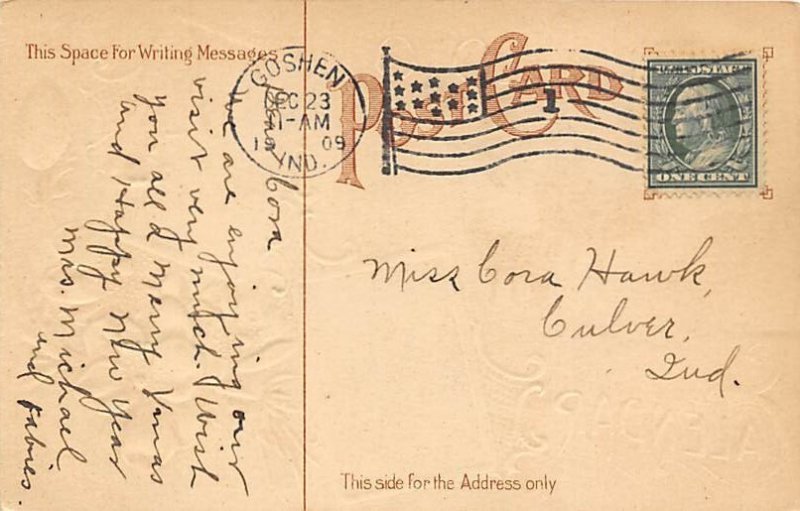 This Space For Writing Messages
POST CARD
GOSHEN
DEC 23
1-AM
1909
IND.
1
U.S. POSTAGE
ONE CENT
Dear Cora
We are enjoying our
visit very much. Wish
you all a Merry Xmas
and Happy New Year
Mrs. Michael
and babies.
Miss Cora Hawk,
Culver,
Ind.
This side for the Address only
CALENDARS